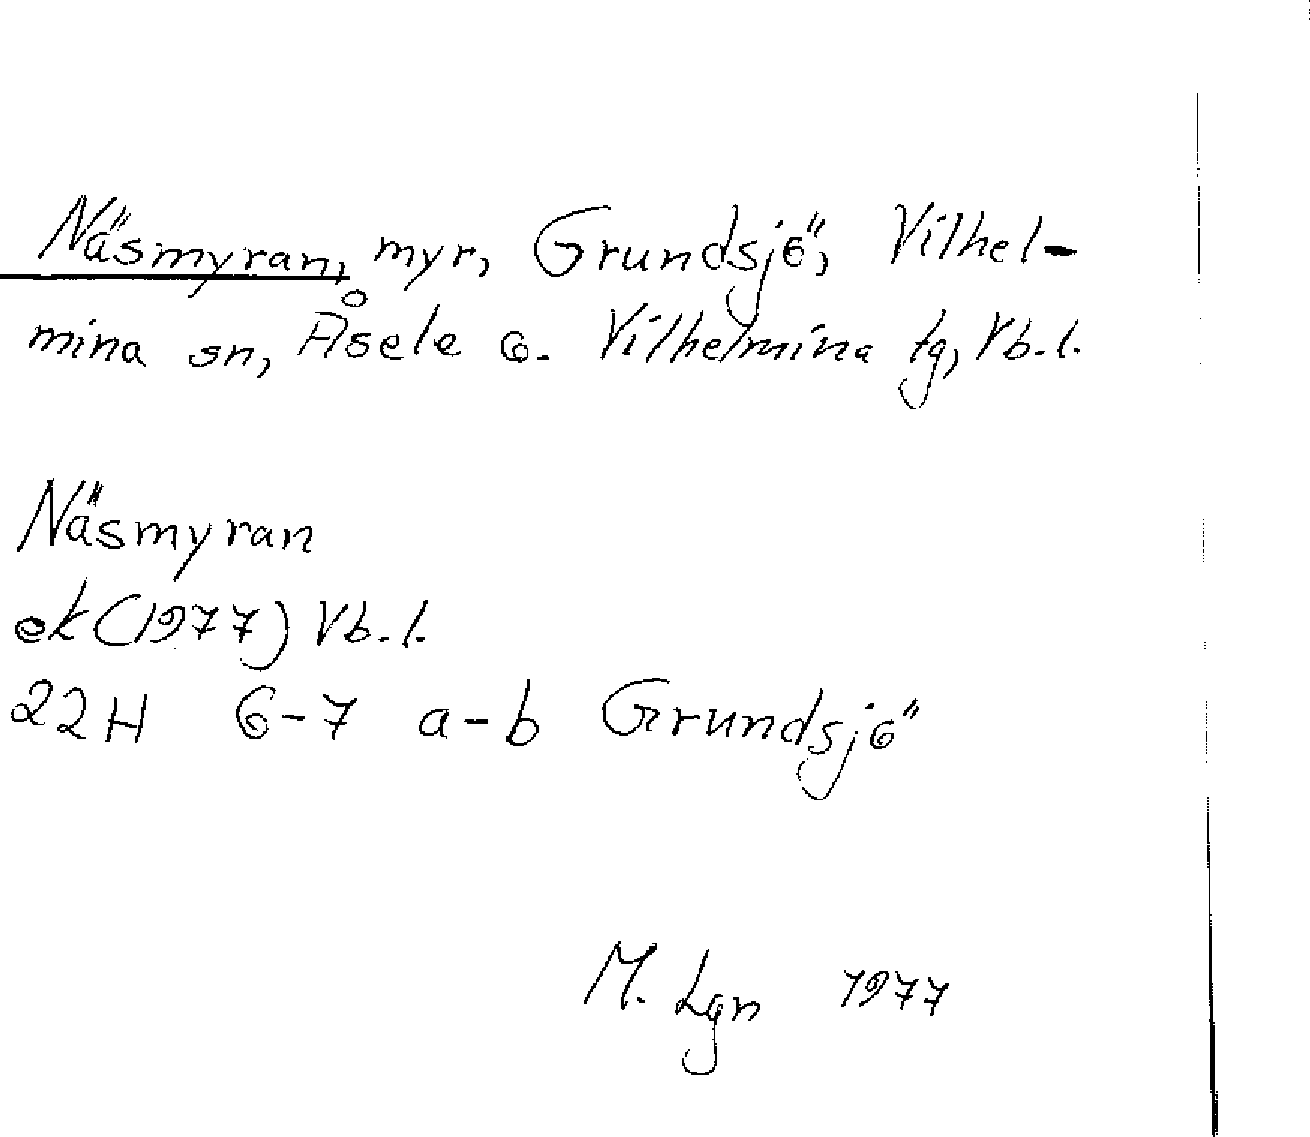 Näsmyran, myr, Grundsjö, Vilhel-
mina sn, Åsele o. Vilhelmina tg, Vb. l.
Näsmyran
ek (1977) Vb. l.
22H 6-7 a-b Grundsjö
M. Lgn 1977